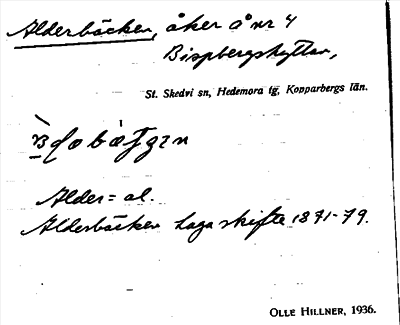 Alderbäcken, åker å nr 4
Bispbergshyttan,
St. Skedvi sn, Hedemora tg, Kopparbergs län.
Alder = al.
Alderbäcken Laga skifte 1871-79.
OLLE HILLNER, 1936.